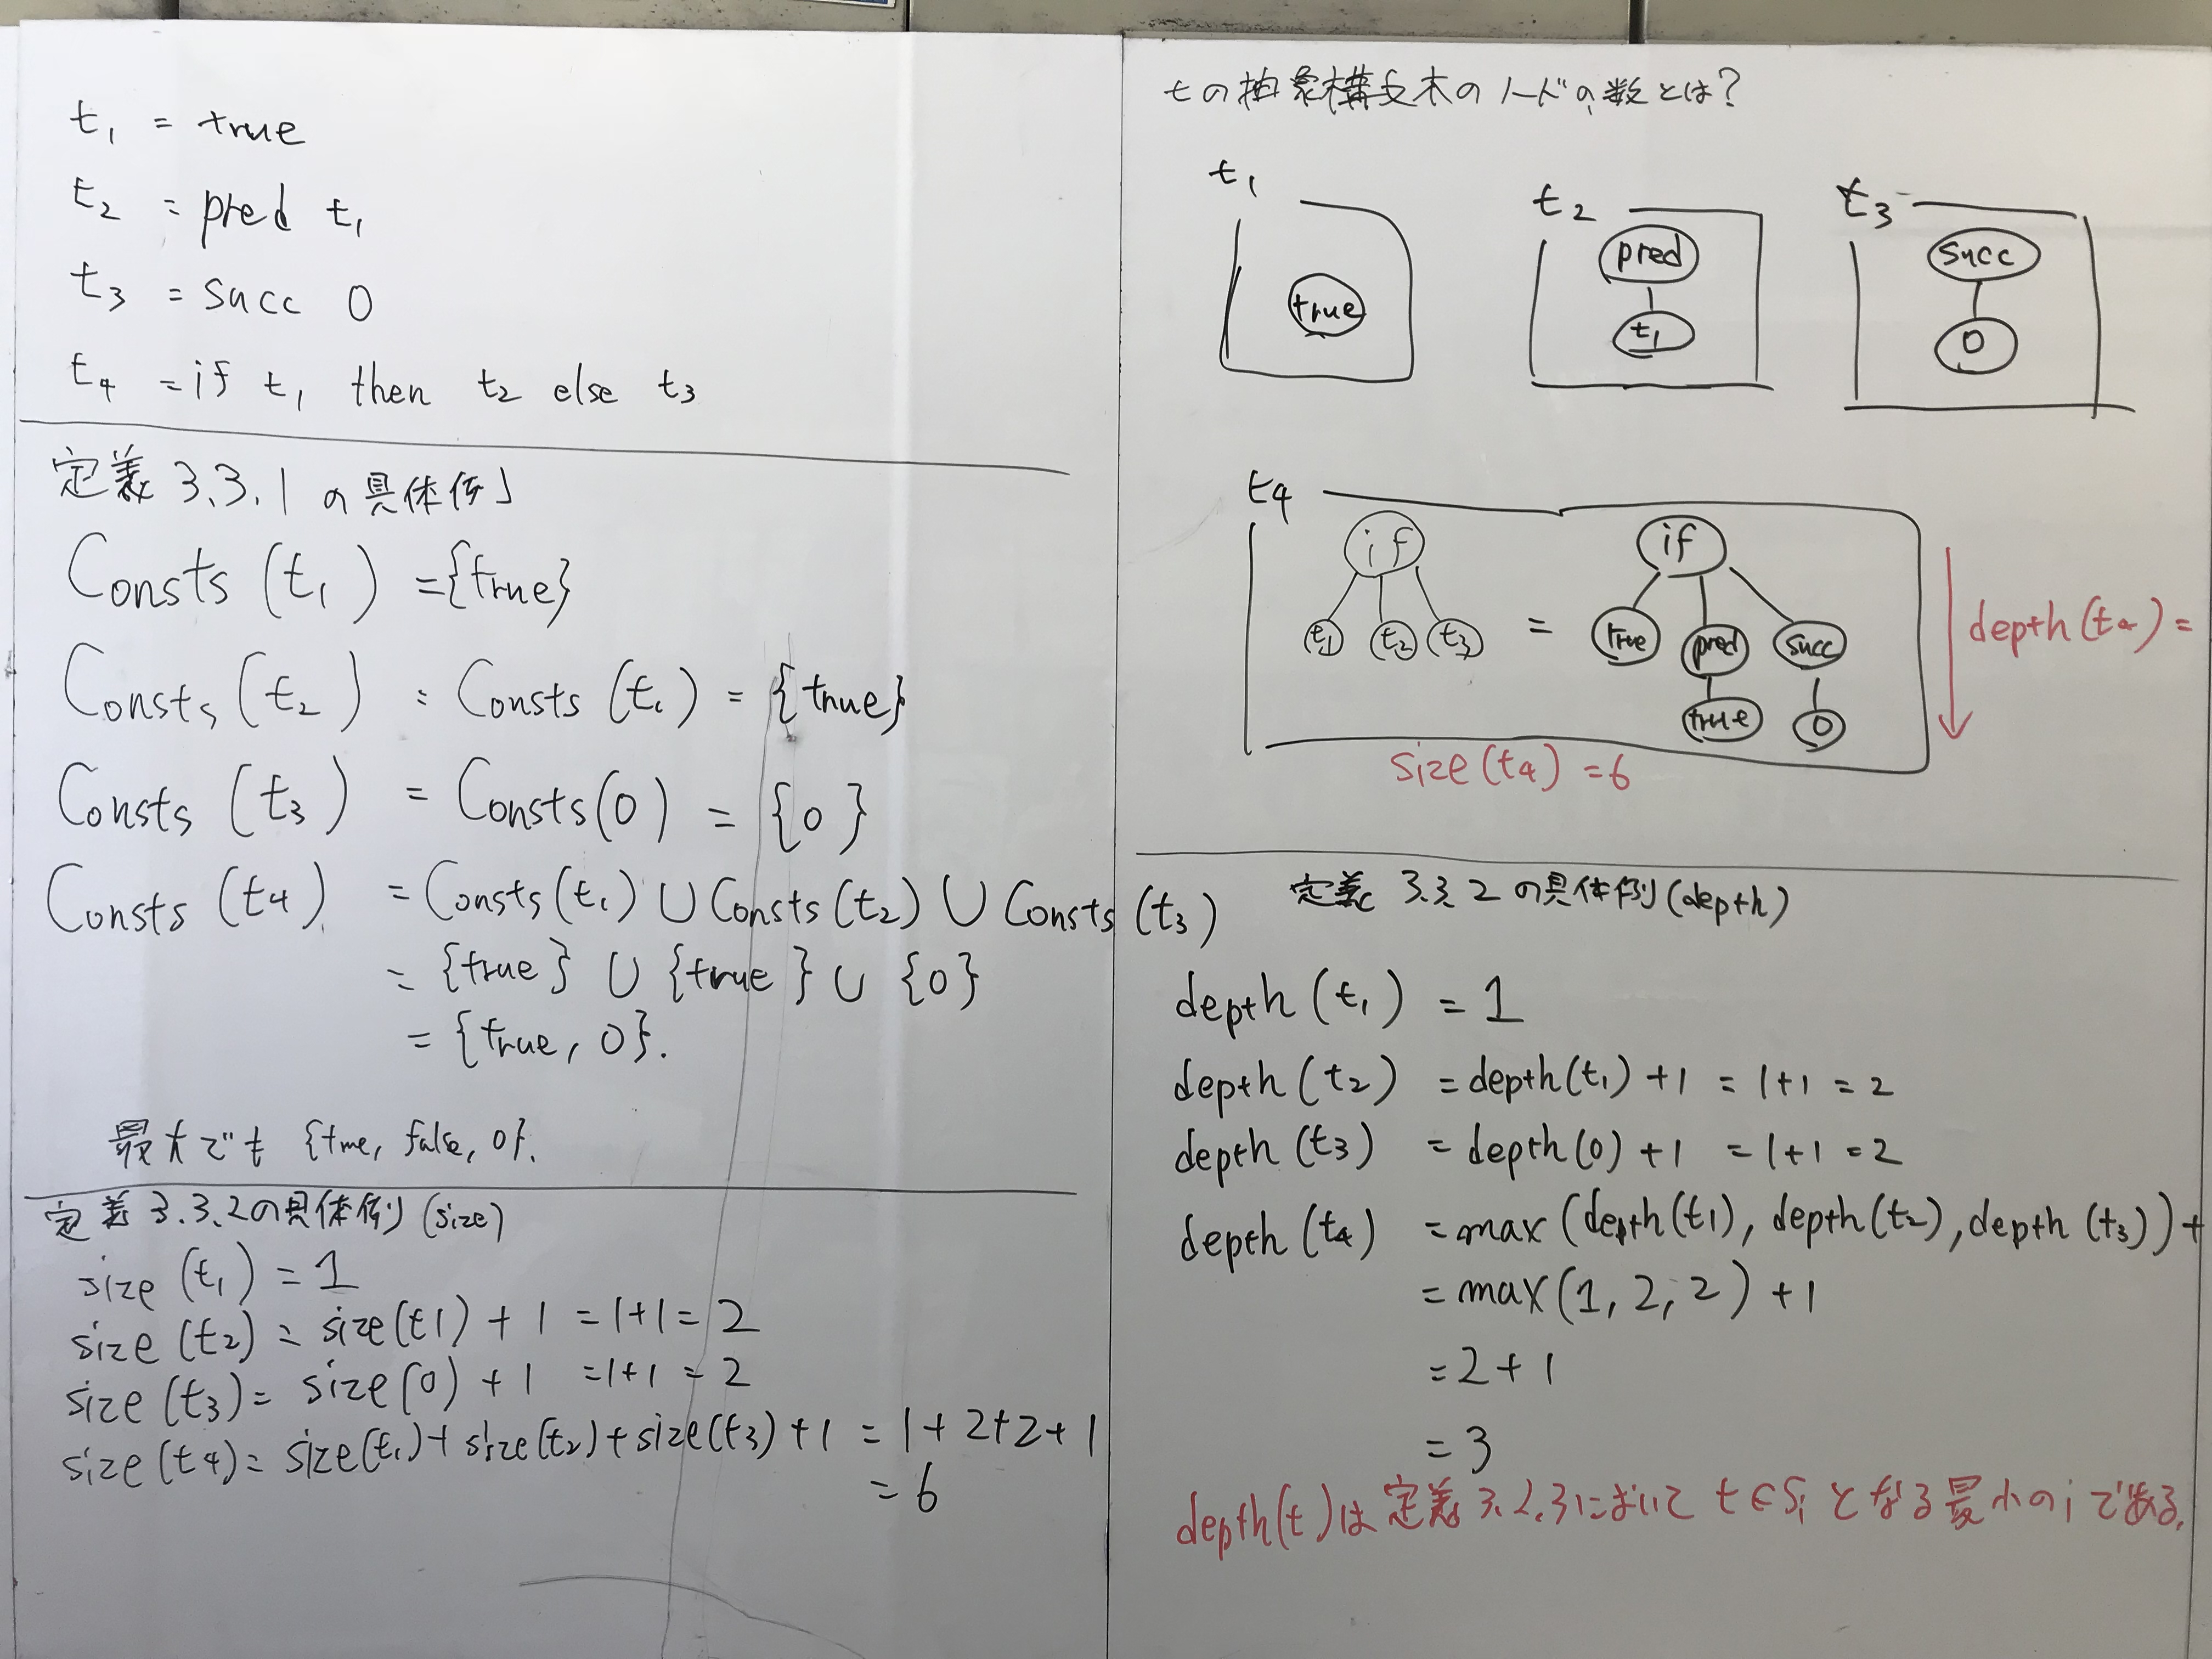 t₁ = true
t₂ = pred t₁
t₃ = succ 0
t₄ = if t₁ then t₂ else t₃
定義 3.3.1 の具体例
Consts (t₁) = {true}
Consts (t₂) = Consts (t₁) = {true}
Consts (t₃) = Consts(0) = {0}
Consts (t₄) = Consts(t₁) ∪ Consts(t₂) ∪ Consts (t₃)
= {true} ∪ {true} ∪ {0}
= {true, 0}.
最大でも {true, false, 0}.
定義 3.3.2の具体例 (size)
size (t₁) = 1
size (t₂) = size(t1) + 1 = 1+1 = 2
size (t₃) = size(0) + 1 = 1+1 = 2
size (t₄) = size(t₁) + size(t₂) + size(t₃) + 1 = 1 + 2 + 2 + 1
= 6
tの抽象構文木のノードの数とは?
t₁
true
t₂
pred
t₁
t₃
succ
0
t₄
if
t₁ t₂ t₃
=
if
true pred succ
true 0
depth(t₄) =
size(t₄) = 6
定義 3.3.2 の具体例 (depth)
depth (t₁) = 1
depth (t₂) = depth(t₁) + 1 = 1+1 = 2
depth (t₃) = depth(0) + 1 = 1+1 = 2
depth (t₄) = max (depth(t₁), depth(t₂), depth (t₃)) +
= max(1, 2, 2) + 1
= 2 + 1
= 3
depth(t)は定義3.2.3において t∈Sᵢ となる最小のiである.